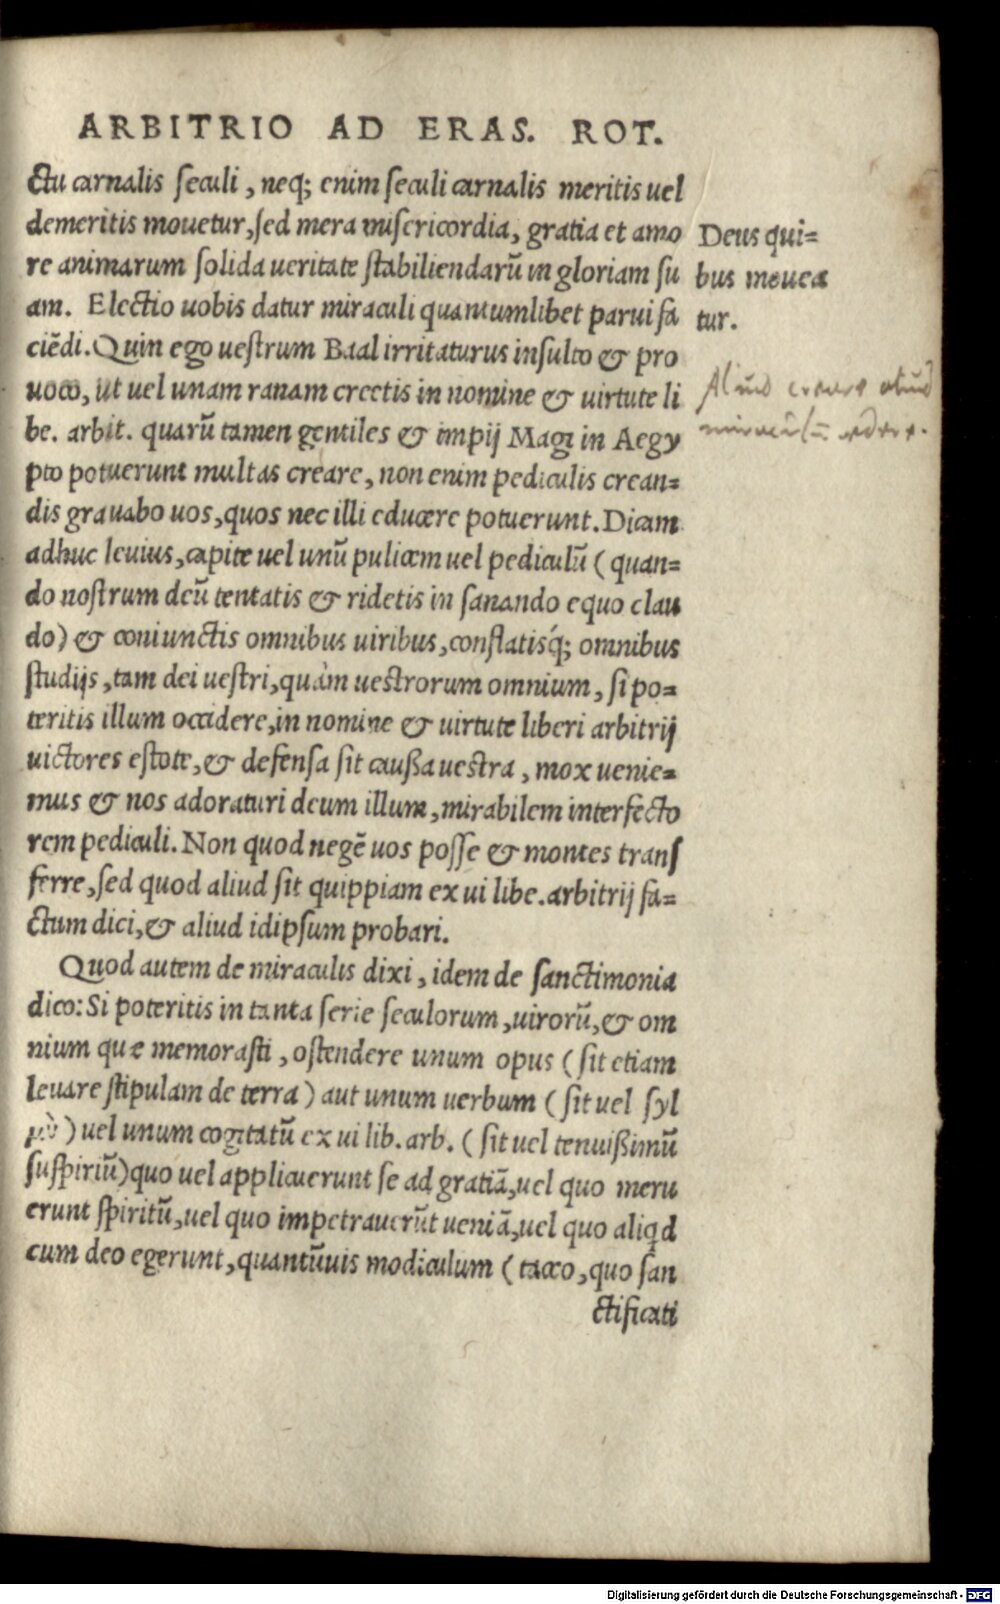 ARBITRIO AD ERAS. ROT.
ctu carnalis seculi, neq; enim seculi carnalis meritis uel
demeritis mouetur, sed mera misericordia, gratia et amo
re animarum solida ueritate stabiliendarũ in gloriam su
am. Electio uobis datur miraculi quantumlibet parui fa
ciẽdi. Quin ego uestrum Baal irritaturus insulto & pro
uoco, ut uel unam ranam creetis in nomine & uirtute li
be. arbit. quarũ tamen gentiles & impij Magi in Aegy
pto potuerunt multas creare, non enim pediculis crean=
dis grauabo uos, quos nec illi educere potuerunt. Dicam
adhuc leuius, capite uel unũ pulicem uel pediculũ (quan=
do nostrum deũ tentatis & ridetis in sanando equo clau
do) & coniunctis omnibus uiribus, conflatisq́; omnibus
studijs, tam dei uestri, quàm uestrorum omnium, si po=
teritis illum occidere, in nomine & uirtute liberi arbitrij
uictores estote, & defensa sit caußa uestra, mox uenie=
mus & nos adoraturi deum illum, mirabilem interfecto
rem pediculi. Non quod negẽ uos posse & montes trans
ferre, sed quod aliud sit quippiam ex ui libe. arbitrij fa=
ctum dici, & aliud idipsum probari.
Quod autem de miraculis dixi, idem de sanctimonia
dico: Si poteritis in tanta serie seculorum, uirorũ, & om
nium quæ memorasti, ostendere unum opus (sit etiam
leuare stipulam de terra) aut unum uerbum (sit uel syl
) uel unum cogitatũ ex ui lib. arb. (sit uel tenuißimũ
suspiriũ) quo uel applicuerunt se ad gratiã, uel quo meru
erunt spiritũ, uel quo impetrauerũt ueniã, uel quo aliqd
cum deo egerunt, quantũuis modiculum (taceo, quo san
ctificati
Deus qui=
bus mouea
tur.
Aliud creare aliud
edere.
Digitalisierung gefördert durch die Deutsche Forschungsgemeinschaft - DFG